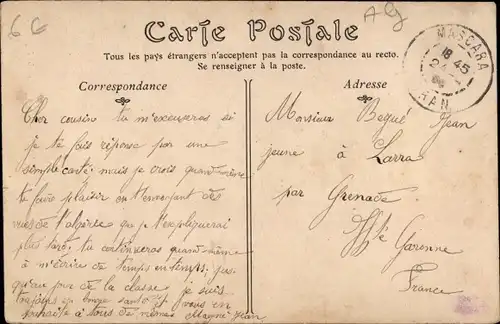 6 C
Alg
Carte Postale
Tous les pays étrangers n'acceptent pas la correspondance au recto.
Se renseigner à la poste.
MASCARA
18 45
ORAN
Correspondance
Cher cousin tu m'excuseras si
je te fais réponse par une
simple carte mais je crois quand même
te faire plaisir en t'envoyant des
vues de l'algérie que je t'expliquerai
plus tard. tu continueras quand même
à m'écrire de temps en temps; jus
qu'au jour de la classe je suis
toujours en bonne santé et vous en
souhaite à tous de même Magne Jean
Adresse
Monsieur Begué Jean
jeune à Larra
par Grenade
Hte Garonne
France